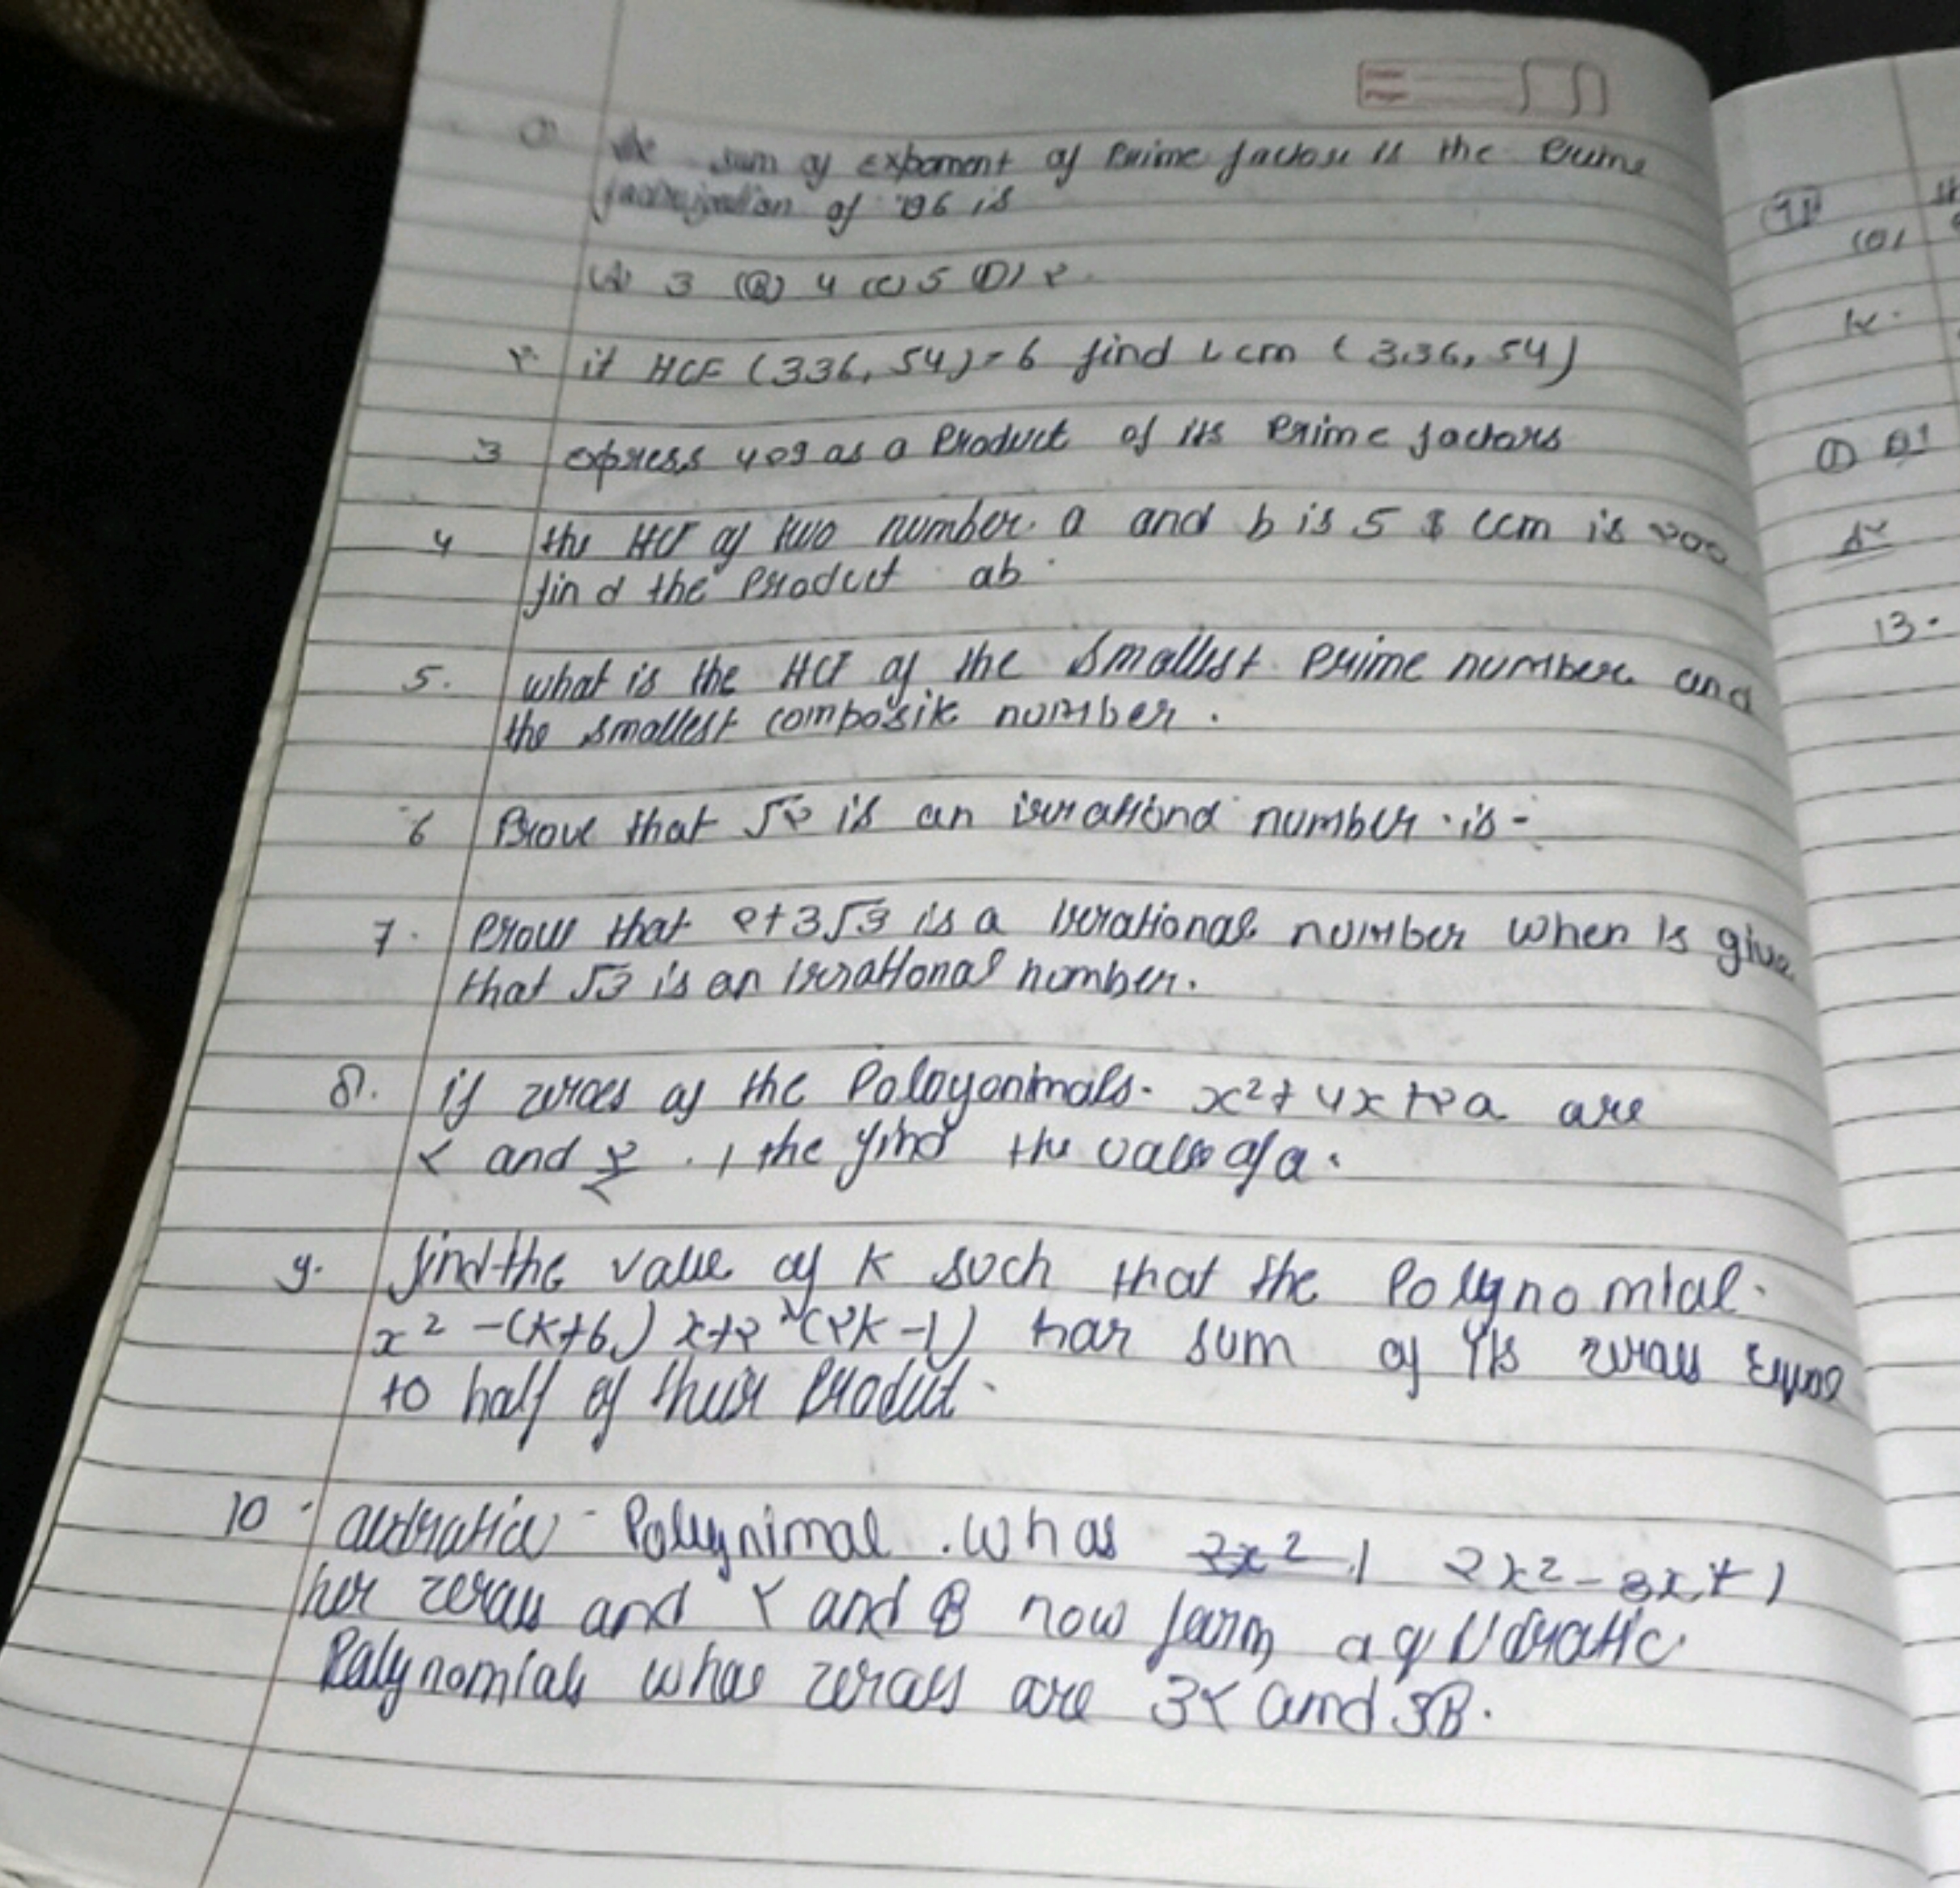 Date:
Page:
sum of Exponent of Prime factors is the Prime
of 196 is
(A) 3 (B) 4 (C) 5 (D) 2.
2. if HCF (336, 54) = 6 find Lcm (336, 54)
3 express 429 as a Product of its Prime factors
4 the HCF of two number. a and b is 5 & Lcm is 200
find the Product ab.
5. what is the HCF of the Smallest Prime number and
the smallest composite number.
6 Prove that √2 is an irrational number. is-
7. Prove that 2+3√3 is a irrational number when is give
that √3 is an irrational number.
8. if zeroes of the Poloyonimals. x²+4x+2a are
α and 2/α . , the find the value of a.
9. find the value of K such that the Polynomial.
x² -(K+6) x+2 (2K-1) has sum of its zeroes Equal
to half of their Product.
10. Polynimal. whas 2x² 2x²-3x+1
zeroes and α and B now form a qudratic
Polynomials whos zeroes are 3α and 3B.
11
(a)
12.
①
13.